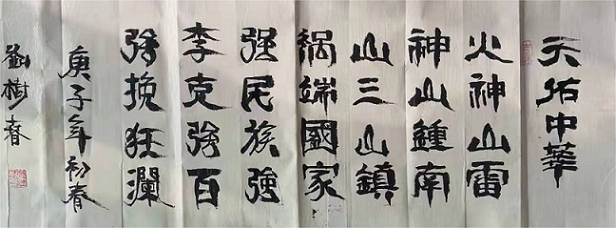 天佑中華
火神山雷
神山鍾南
山三山鎮
禍端國家
强民族強
李克強百
強挽狂瀾
庚子年初春
劉樹春